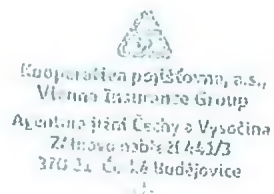 Kooperativa pojišťovna, a.s.,
Vienna Insurance Group
Agentura jižní Čechy a Vysočina
nábřeží 441/3
370 21 České Budějovice